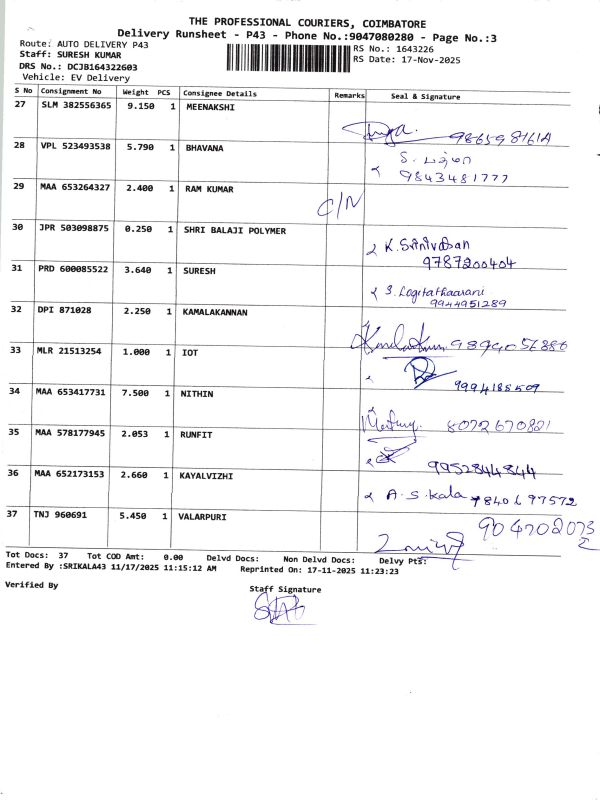 THE PROFESSIONAL COURIERS, COIMBATORE
Delivery Runsheet - P43 - Phone No.:9047080280 - Page No.:3
Route: AUTO DELIVERY P43
Staff: SURESH KUMAR
DRS No.: DCJB164322603
Vehicle: EV Delivery
RS No.: 1643226
RS Date: 17-Nov-2025
S No Consignment No Weight PCS Consignee Details Remarks Seal & Signature
27 SLM 382556365 9.150 1 MEENAKSHI
28 VPL 523493538 5.790 1 BHAVANA
9843481777
29 MAA 653264327 2.400 1 RAM KUMAR C/N
30 JPR 503098875 0.250 1 SHRI BALAJI POLYMER K. Srinivasan
9787200404
31 PRD 600085522 3.640 1 SURESH S. Logitathaarani
9944951289
32 DPI 871028 2.250 1 KAMALAKANNAN
33 MLR 21513254 1.000 1 IOT
9994185509
34 MAA 653417731 7.500 1 NITHIN
8072670821
35 MAA 578177945 2.053 1 RUNFIT
9952844844
36 MAA 652173153 2.660 1 KAYALVIZHI A.S. Kala
37 TNJ 960691 5.450 1 VALARPURI
Tot Docs: 37 Tot COD Amt: 0.00 Delvd Docs: Non Delvd Docs: Delvy Pts:
Entered By :SRIKALA43 11/17/2025 11:15:12 AM Reprinted On: 17-11-2025 11:23:23
Verified By
Staff Signature